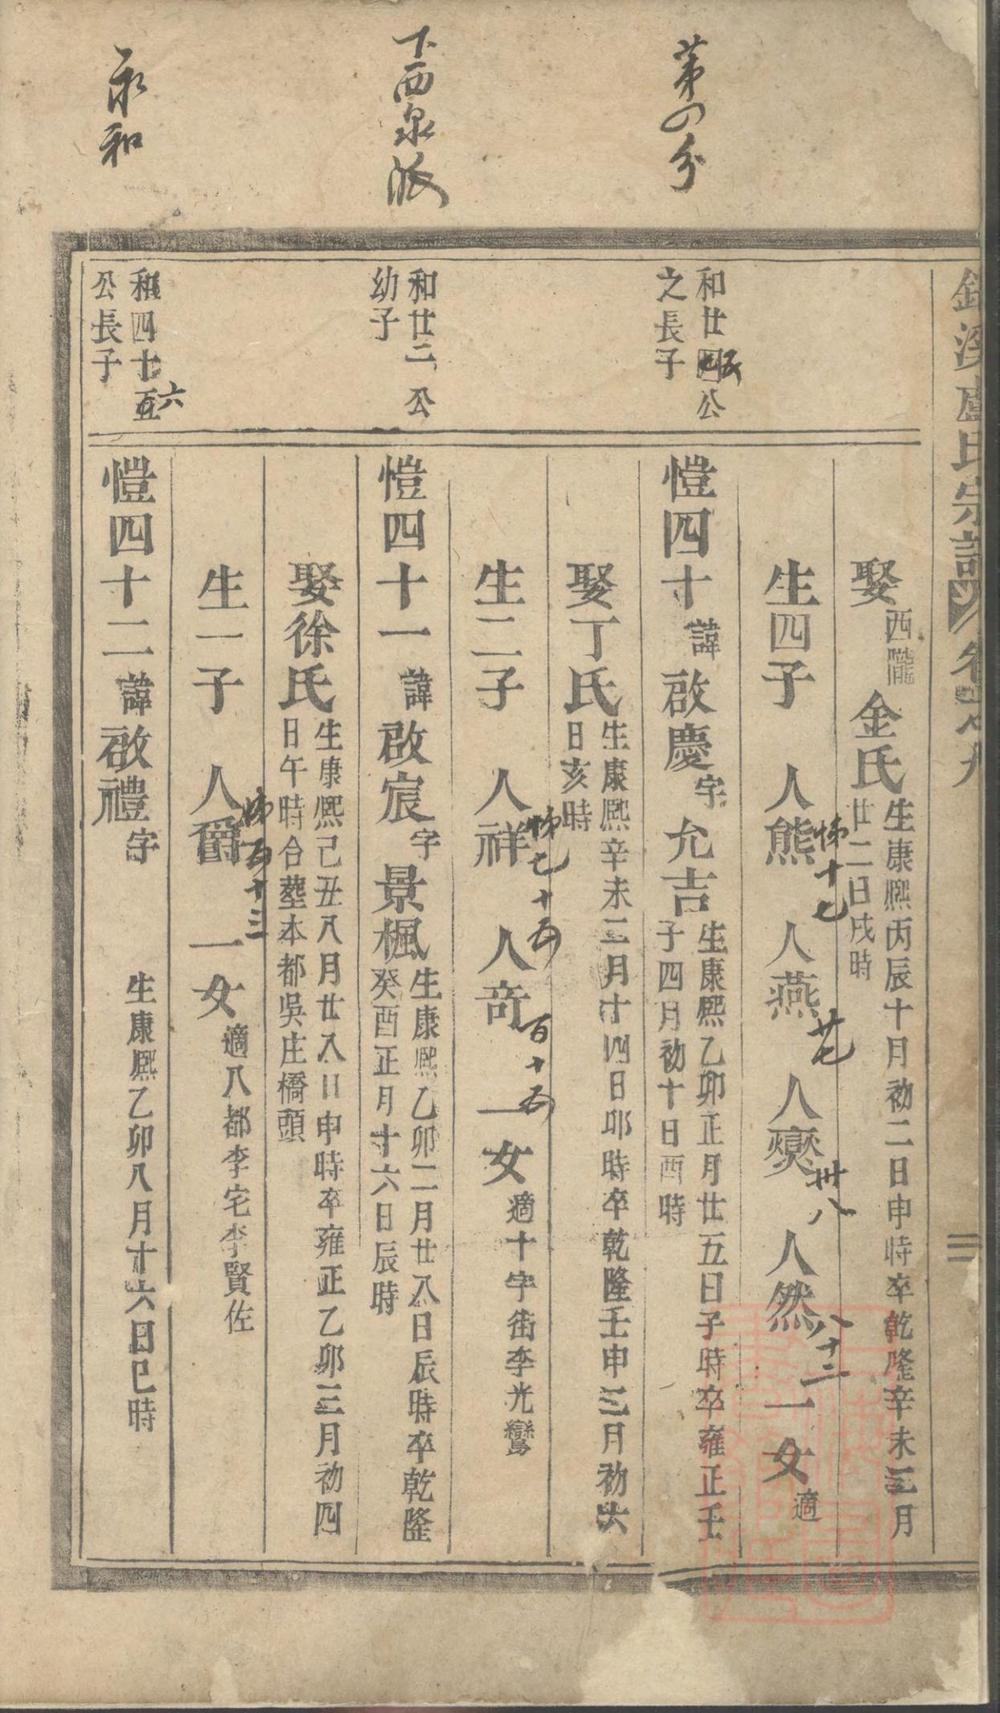 第四分
下西泉派
永和
溪盧氏宗譜
和廿四五公
之長子
和廿二公
幼子
和四十五六
公長子
娶西隴金氏生康熙丙辰十月初二日申時卒乾隆辛未三月
廿二日戌時
生四子 人熊 人燕 人爕 人然 一女適
悌十七 廿七 卅八 八十二
愷四十諱啟慶字允吉生康熙乙卯正月廿五日子時卒雍正壬
子四月初十日酉時
娶丁氏生康熙辛未三月十四日卯時卒乾隆壬申三月初六
日亥時
生二子 人祥 人奇 一女適十字街李光鸞
悌七十五 百十五
愷四十一諱啟宸字景楓生康熙乙卯二月廿八日辰時卒乾隆
癸酉正月十六日辰時
娶徐氏生康熙己丑八月廿八日申時卒雍正乙卯三月初四
日午時合塟本都吳庄橋頭
生一子 人爵 一女適八都李宅李賢佐
悌百十三
愷四十二諱啟禮字 生康熙乙卯八月十六日巳時